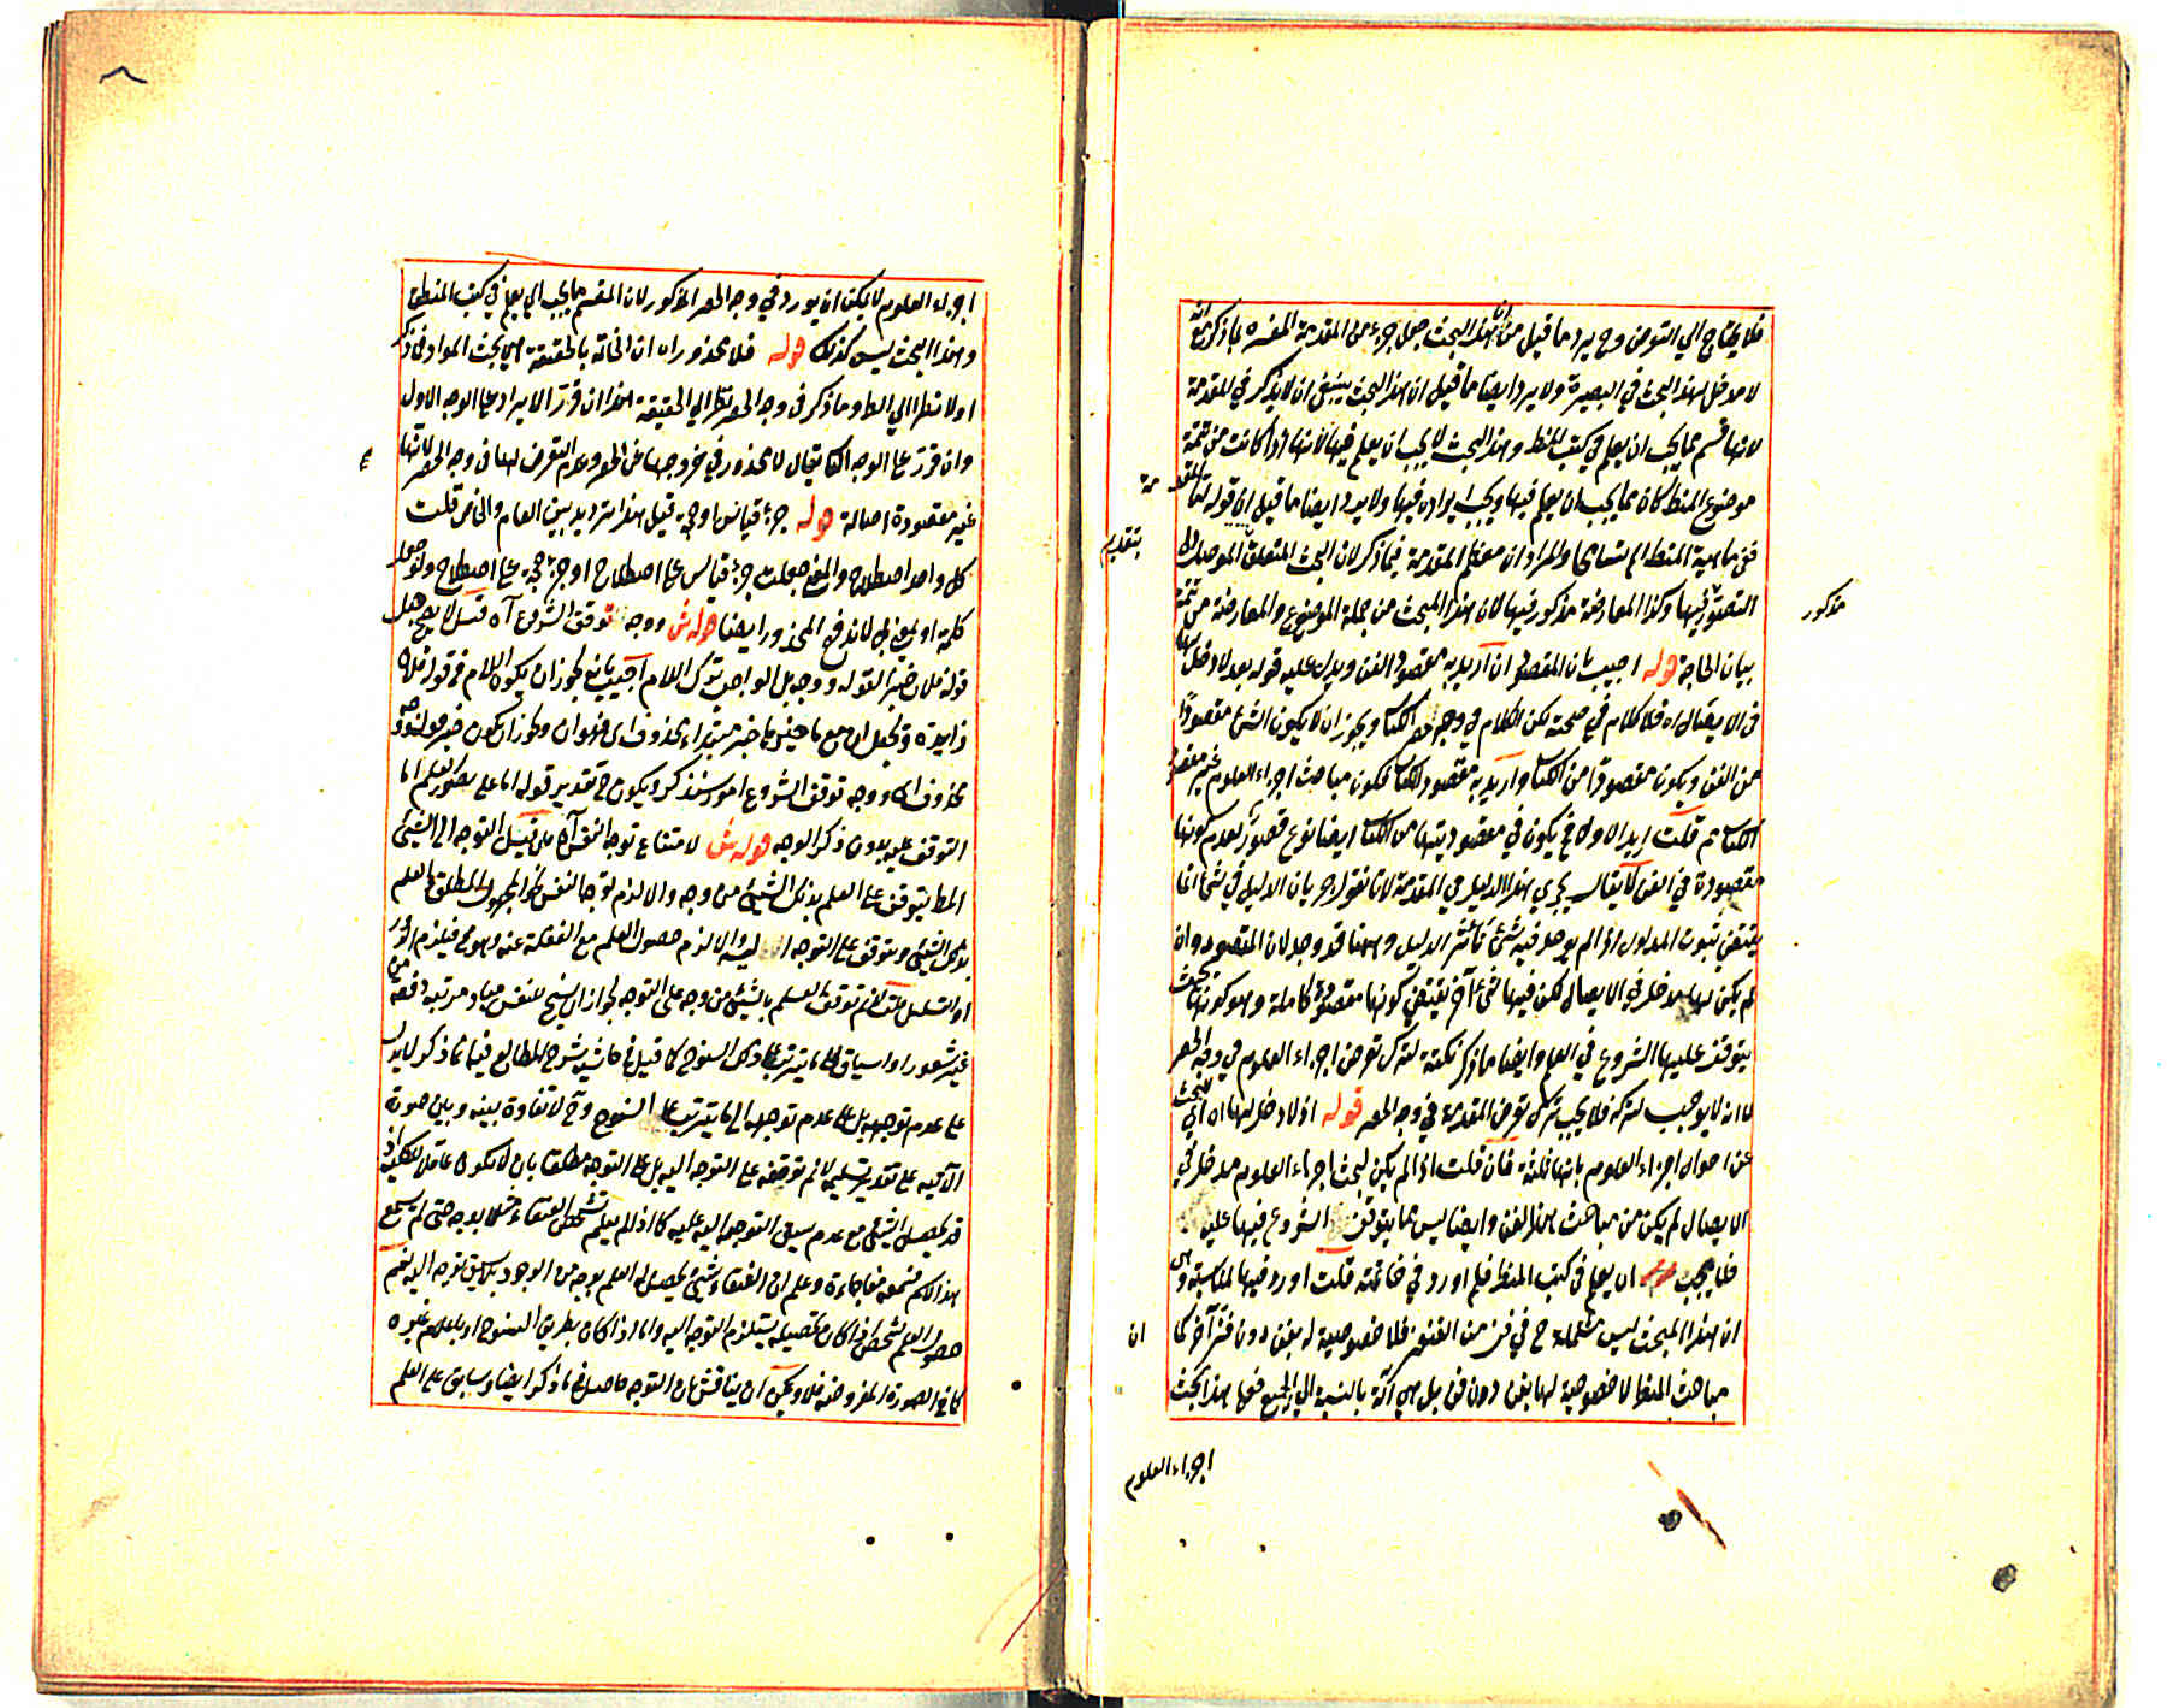 فلا يحتاج الي التعرض وح يرد ما قيل من ان هذا البحث جعل جزء من المقدمة المفسره بما ذكر مع انه
لا مدخل لهذا البحث في البصيرة ولا يرد ايضا ما قيل ان هذا البحث ينبغي ان لا يذكر في المقدمة
لانها قسم مما يجب ان يعلم في كتب المنط وهذا البحث لا يجب ان يعلم فيها لانها اذا كانت من تتمة
موضوع المنط كان مما يجب ان يعلم فيها ويجب ايراده فيها ولا يرد ايضا ما قيل ان قوله
ففي ماهية المنط والمراد ان معظم المقدمة فيما ذكر لان البحث المتعلق
بتقديم
التصور فيها وكذا المعارضة مذكور فيها لان هذا المبحث من جملة الموضوع والمعارضة من تتمة
مذكور
بيان الحاجة قوله اجيب بان المقصود ان اريد به مقصود الفن ويدل عليه قوله بعد لا دخل لها
في الايصال اه فلا كلام في صحته لكن الكلام في وجه حصر الكتاب ويجوز ان لا يكون الشئ مقصودا
من الفن ويكون مقصودا من الكتاب وان اريد به مقصود الكتاب فكون مباحث اجزاء العلوم غير مقصود
الكتاب تم قلت اريد الاول في يكون في مقصوديتها من الكتاب ايضا نوع قصور لعدم كونها
مقصودة في الفن لا يقال يجري هذا الدليل في المقدمة لانا نقول جريان الدليل في شئ انما
يقتضي ثبوت المدلول اذا لم يوجد فيه شئ الدليل وههنا قد وجد لان المقصود وان
لم يكن لها مدخل في الايصال لكن فيها شئ آخر يقتضي كونها مقصودة كاملة وهو كونها بحيث
يتوقف عليها الشروع في العلم وايضا ما ذكر نكتة لترك تعرض اجزاء العلوم في وجه الحصر
لا انه لا يوجب لتركه فلا يجب ترك تعرض المقدمة في وجه الحصر قوله اذ لا دخل لها اه اي للبحث
عن احوال اجزاء العلوم بانها ثلثة فان قلت اذا لم يكن لبحث اجزاء العلوم مدخل في
الايصال لم يكن من مباحث هذا الفن وايضا ليس مما يتوقف الشروع فيها عليه
فلا يجب ان يعلم في كتب المنط فلم اورد في خاتمته قلت اورد فيها لمناسبة وهي
ان هذا المبحث ليس ح في فن من الفنون فلا خصوصية له بفن دون فن آخر كما
ان
مباحث المنط لا خصوصية لها بفن دون فن بل هي آلة بالنسبة الي الجميع فهذا بحث
اجزاء العلوم
اجزاء العلوم لا يمكن ان يورد في وجه الحصر المذكور لان المقسم ما يجب ان يعلم في كتب المنطق
وهذا البحث ليس كذلك قوله فلا محذور اه ان الخاتمة بالحقيقة هي بحث المواد فما ذكر
اولا نظرا الي الظ وما ذكر في وجه الحصر نظرا الي الحقيقة هذا ان قرر الايراد علي الوجه الاول
وان قرر علي الوجه الثاني يقال لا محذور في خروجها عن الحصر وعدم التعرض لها في وجه الحصر لانها
غير مقصودة اصالة قوله جزء قياس او حجة قيل هذا ترديد بين العام والخاص قلت
كل واحد اصطلاح والمعني جعلت جزء قياس علي اصطلاح او جزء حجة علي اصطلاح ولو جعل
كلمة او بمعني بل لاندفع المحذور ايضا قوله ش ووجه توقف الشروع آه قيل لا يصح جعل
قوله فلان خبرا لقوله ووجه بل الواجب ترك اللام اجيب بانه يجوز ان يكون اللام في قوله فلان
زايدة وتجعل ان مع ما حيزها خبر مبتداء محذوف اي فهو ان ويجوز ان يكون خبر قوله ووجه
محذوف اي ووجه توقف الشروع امور ستذكر ويكون ح تقدير قوله اما علي تصور العلم اما
التوقف عليه بدون ذكر الوجه قوله ش لامتناع توجه النفس آه قيل التوجه الي الشئ
المط يتوقف علي العلم بذلك الشئ من وجه والا لزم توجه النفس نحو المجهول المطلق والعلم
بذلك الشئ يتوقف علي التوجه اليه والا لزم حصول العلم مع الغفلة عنه وهو مح فيلزم الدور
او التسلسل قلت لانم توقف العلم بالشئ من وجه علي التوجه لجواز ان يسنح للنفس مباد مرتبة دفعة من
غير شعور او اسياق الي ما يترتب علي ذلك السنوح كما قيل في حاشية شرح المطالع فيما ذكر لا يدل
علي عدم توجهه بل علي عدم توجهه الي ما يترتب علي السنوح وح لا تفاوة بينه وبين صورة
الآتية علي تقدير تسليمه لانم توقفه علي التوجه اليه بل علي التوجه مطلقا بان لا يكون غافلا بالكلية اذ
قد يحصل الشئ مع عدم سبق التوجه اليه عليه كما اذا لم يعلم شخص العنقاء مثلا بوجه حتي لم يسمع
هذا الاسم فسمعه مفاجاءة وعلم ان العنقاء شئ يحصل له العلم بوجه من الوجود بلا سبق توجه اليه نعم
حصول العلم لشخص اذا كان بتحصيله يستلزم التوجه اليه واما اذا كان بطريق السنوح او باعلام غيره
كما في الصورة المفروضة فلا ويمكن ان يناقش بان التوجه حاصل فيما ذكر ايضا وسابق علي العلم